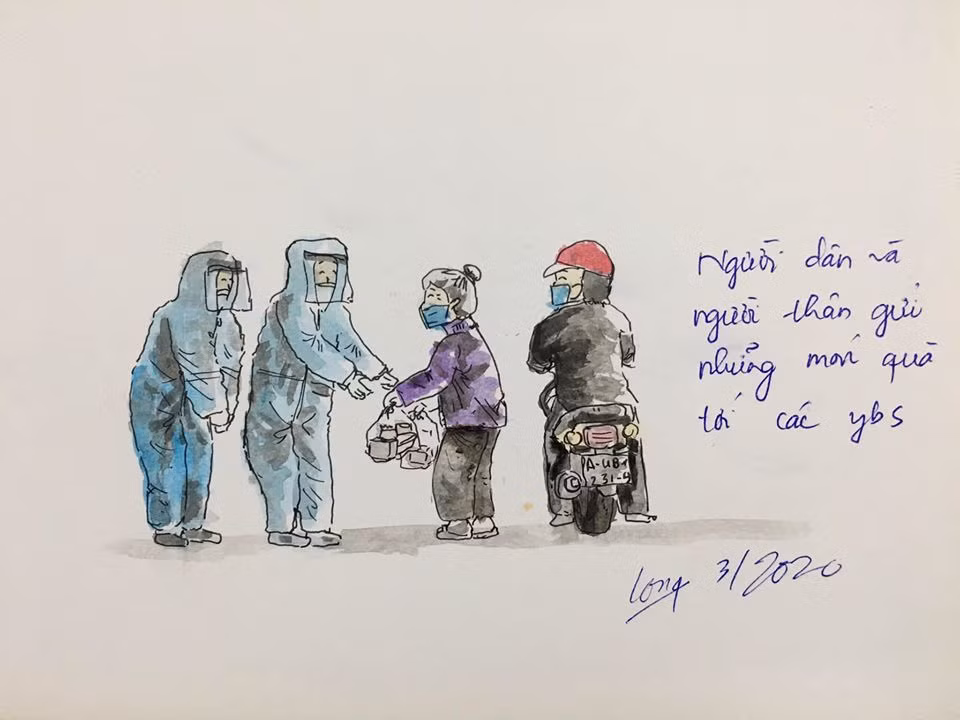 A-U8
231-4
Người dân và
người thân gửi
những món quà
tới các ybs
Long 3/2020